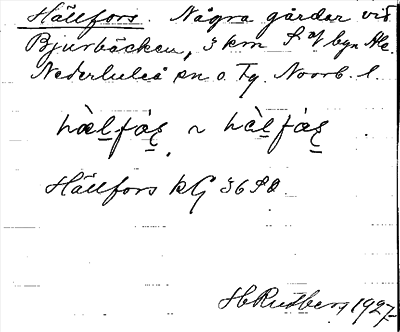 Hällfors Några gårdar vid
Bjurbäcken, 3 km S af byn Ale.
Nederluleå sn o. Tg. Norrb. l.
hæ̀l̲fàs̲ ~ hàl̲fàs̲
Hällfors kG 36 SO
HRutberg 1927